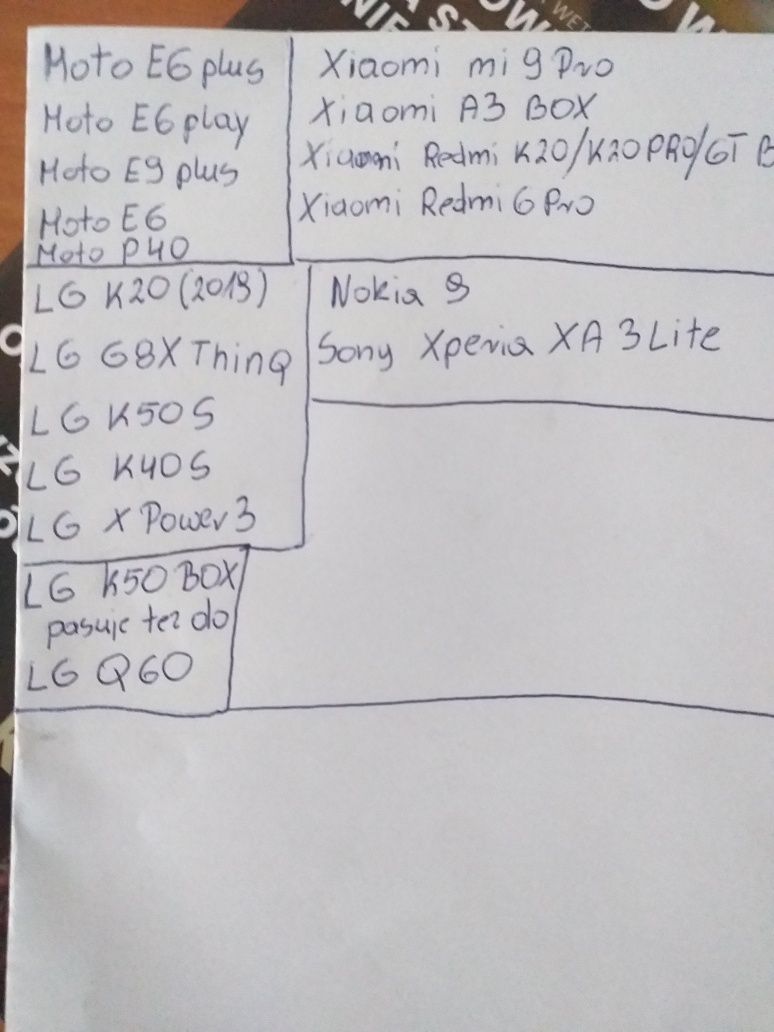 Moto E6 plus
Moto E6 play
Moto E9 plus
Moto E6
Moto P40
Xiaomi mi 9 Pro
Xiaomi A3 BOX
Xiaomi Redmi K20/K20 PRO/GT B
Xiaomi Redmi 6 Pro
LG K20 (2019)
LG G8X ThinQ
LG K50S
LG K40S
LG X Power 3
Nokia 9
Sony Xperia XA 3 Lite
LG K50 BOX
pasuje też do
LG Q60